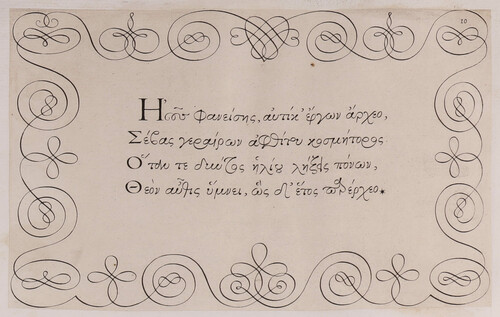 10
Ἠοῦς φανείσης, αὐτίκ' ἔργων ἄρχεο,
Σέβας γεραίρων ἀφθίτου κοσμήτορος
Ὅταν τε ἡλίου λήξῃς πόνων,
Θεὸν αὖθις ὕμνει, ὣς δι' ἔτος